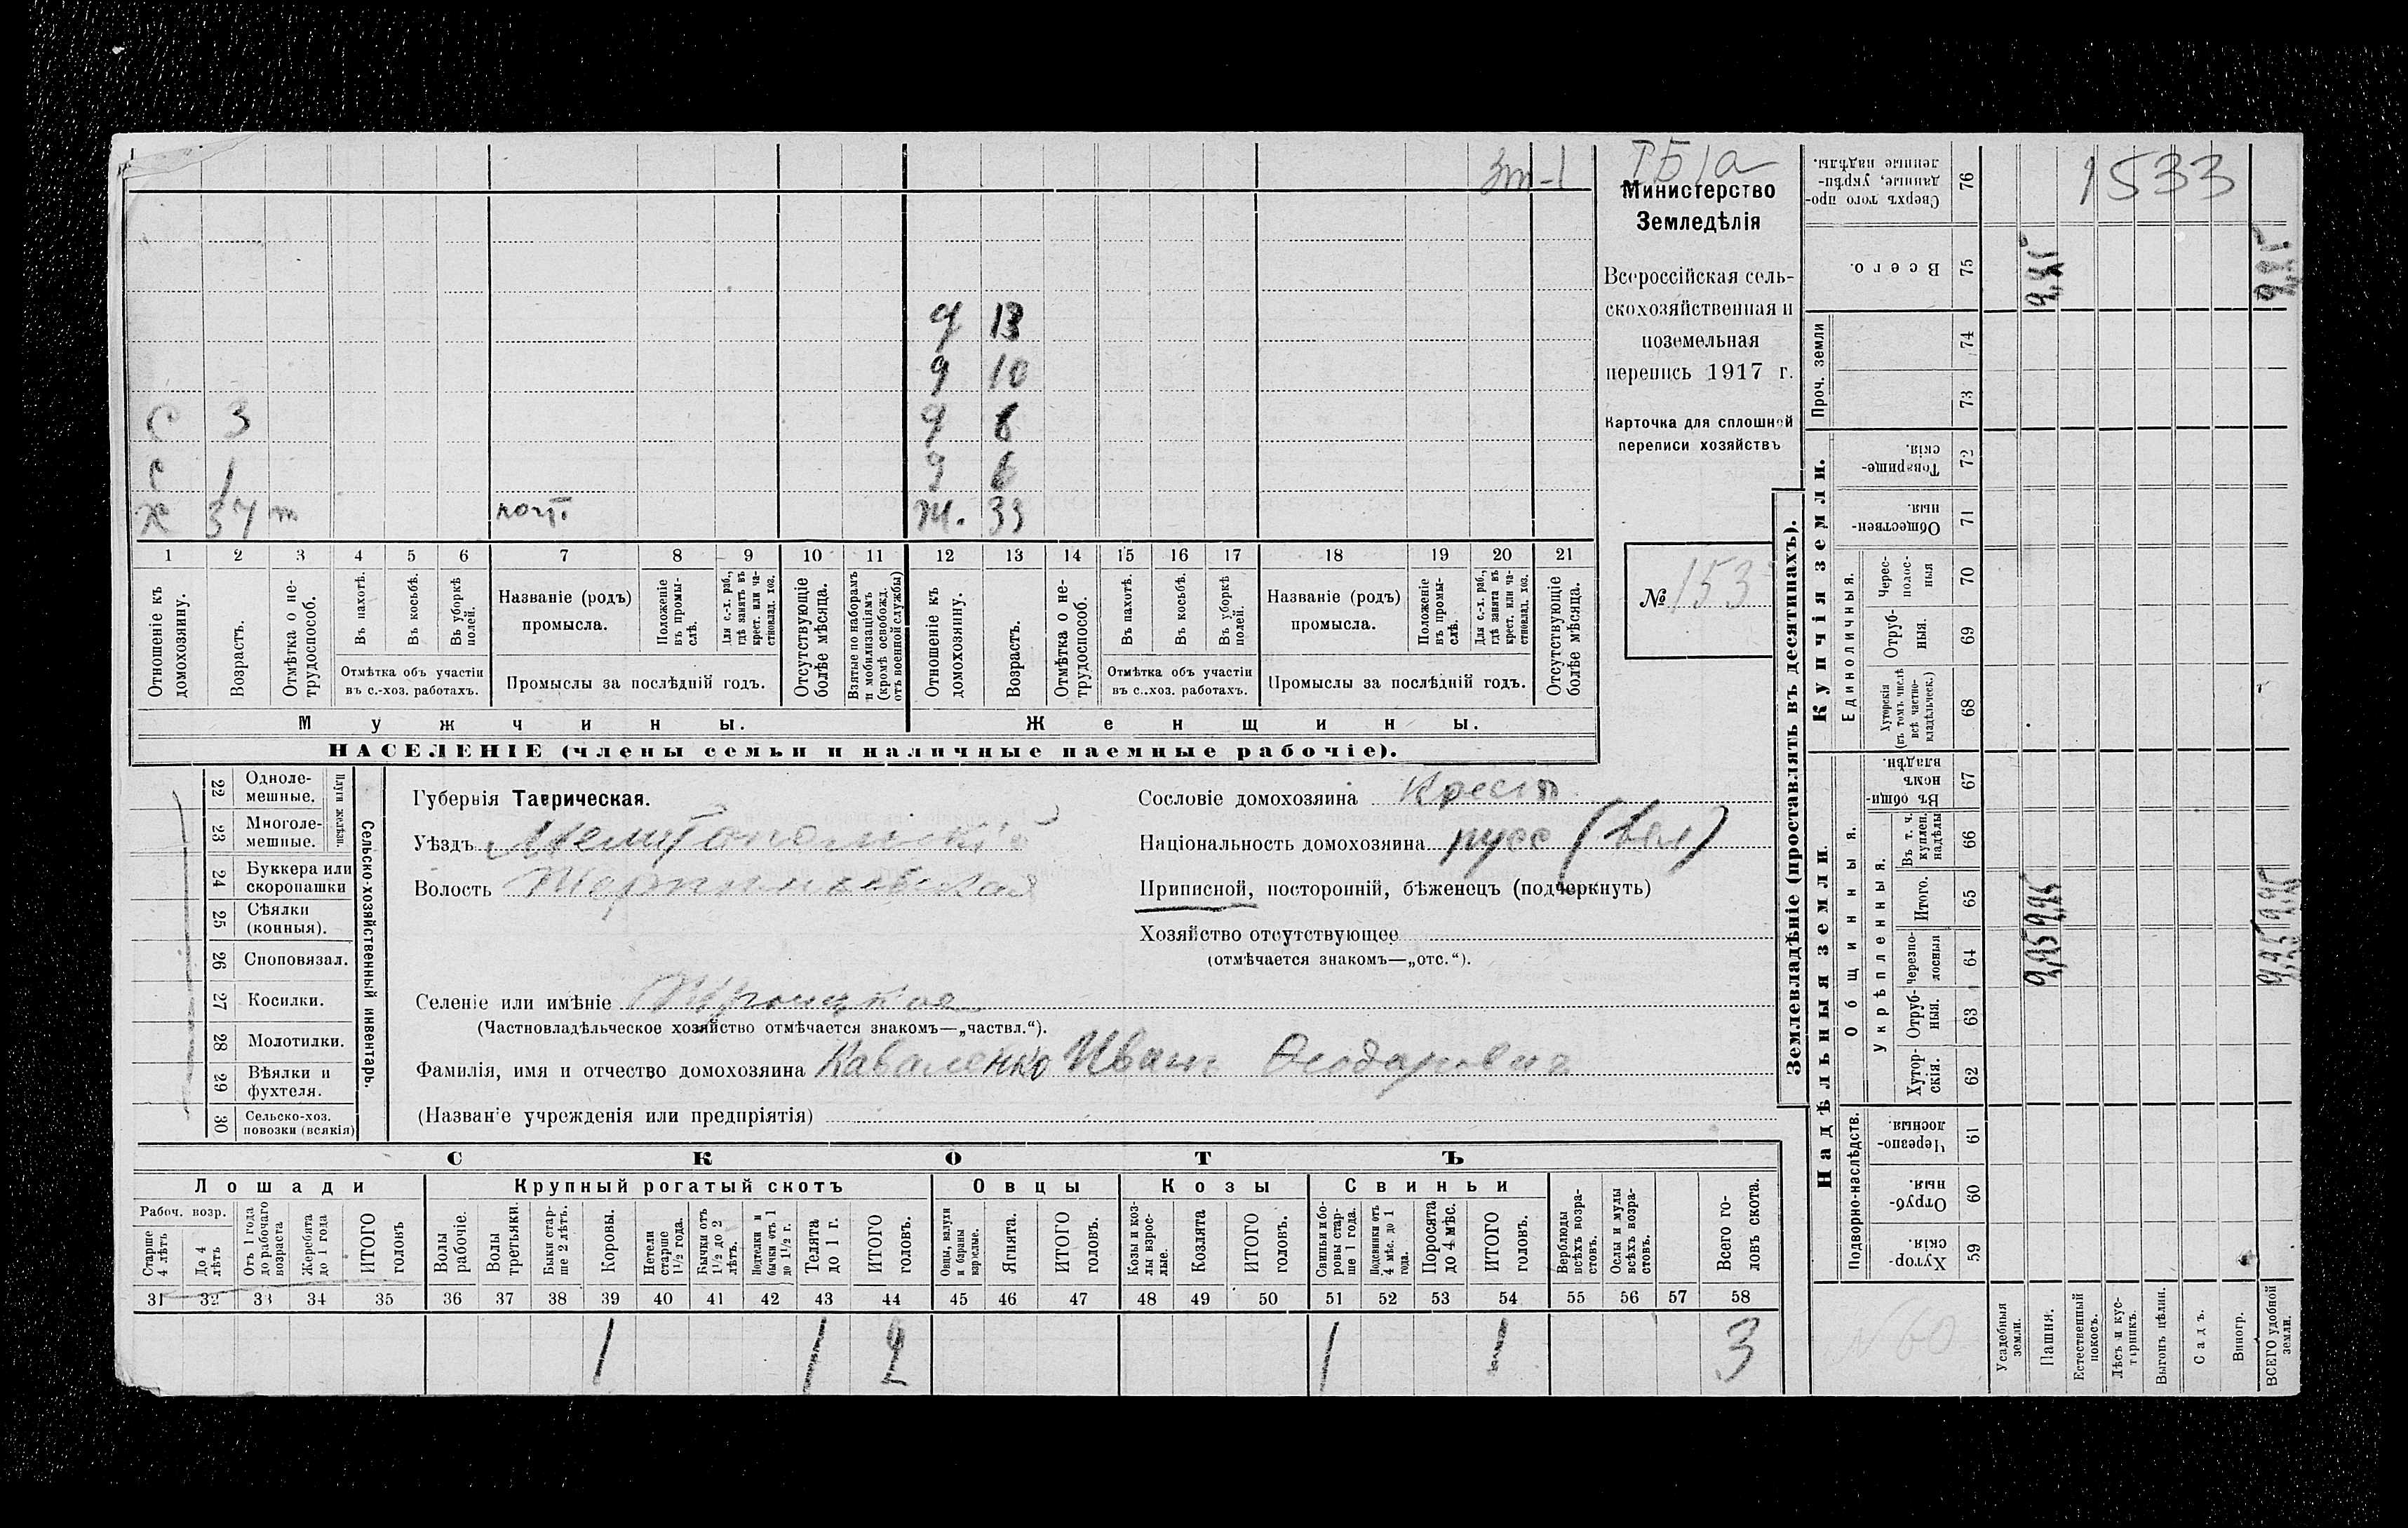 Зт-1
ТБ1а
1533
Министерство
Земледѣлія
Всероссійская сель-
скохозяйственная и
поземельная
перепись 1917 г.
Карточка для сплошной
переписи хозяйствъ
№ 153
д 13
д 10
с 3 д 8
с 1 д 6
х 37 ж. 39
1 2 3 4 5 6 7 8 9 10 11 12 13 14 15 16 17 18 19 20 21
Отношеніе къ домохозяину.
Возрастъ.
Отмѣтка о не-трудоспособ.
Въ пахотѣ.
Въ косьбѣ.
Въ уборкѣ полей.
Отмѣтка объ участіи
въ с.-хоз. работахъ.
Названіе (родъ)
промысла.
Положеніе въ промы-слѣ.
Для с.-х. раб., гдѣ занятъ въ крест. или ча-стновлад. хоз.
Промыслы за послѣдній годъ.
Отсутствующіе болѣе мѣсяца.
Взятые по наборамъ и мобилизаціямъ (кромѣ освобожд. отъ военной службы)
Отношеніе къ домохозяину.
Возрастъ.
Отмѣтка о не-трудоспособ.
Въ пахотѣ.
Въ косьбѣ.
Въ уборкѣ полей.
Отмѣтка объ участіи
въ с..хоз. работахъ.
Названіе (родъ)
промысла.
Положеніе въ промы-слѣ.
Для с.-х. раб., гдѣ занята въ крест. или ча-стновлад. хоз.
Промыслы за послѣдній годъ.
Отсутствующіе болѣе мѣсяца.
Мужчины. Женщины.
НАСЕЛЕНІЕ (члены семьи и наличные наемные рабочіе).
Сельско-хозяйственный инвентарь.
Плуги желѣзн.
22 Одноле-мешные.
23 Многоле-мешные.
24 Буккера или скоропашки
25 Сѣялки (конныя).
26 Сноповязал.
27 Косилки.
28 Молотилки.
29 Вѣялки и фухтеля.
30 Сельско-хоз. повозки (всякія)
Губернія Таврическая.
Уѣздъ Мелитопольскій
Волость
Селеніе или имѣніе Троицкое
(Частновладѣльческое хозяйство отмѣчается знакомъ—„частвл.“).
Фамилія, имя и отчество домохозяина Каваленко Иванъ
(Названіе учрежденія или предпріятія)
Сословіе домохозяина Крест
Національность домохозяина русс (вел)
Приписной, посторонній, бѣженецъ (подчеркнуть)
Хозяйство отсутствующее
(отмѣчается знакомъ—„отс.“).
СКОТЪ
Лошади Крупный рогатый скотъ Овцы Козы Свиньи
Рабоч. возр.
Старше 4 лѣтъ
До 4 лѣтъ
Отъ 1 года до рабочаго возраста
Жеребята до 1 года
ИТОГО головъ
Волы рабочіе.
Волы третьяки.
Быки стар-ше 2 лѣтъ.
Коровы.
Нетели старше 1½ года.
Бычки отъ 1½ до 2 лѣтъ.
Нетелки и бычки отъ 1 до 1½ г.
Телята до 1 г.
ИТОГО головъ.
Овцы, валухи и бараны взрослые.
Ягнята.
ИТОГО головъ.
Козы и коз-лы взрос-лые.
Козлята
ИТОГО головъ.
Свиньи и бо-ровы стар-ше 1 года.
Подсвинки отъ 4 мѣс. до 1 года.
Поросята до 4 мѣс.
ИТОГО головъ.
Верблюды всѣхъ возра-стовъ.
Ослы и мулы всѣхъ возра-стовъ.
Всего го-ловъ скота.
31 32 33 34 35 36 37 38 39 40 41 42 43 44 45 46 47 48 49 50 51 52 53 54 55 56 57 58
1 1 2 1 1 3
Землевладѣніе (проставлять въ десятинахъ).
Надѣльныя земли
Купчія земли.
Проч. земли
Подворно-наслѣдств.
Общинныя.
Укрѣпленныя.
Единоличныя.
Хутор-скія. 59
Отруб-ныя. 60
Черезпо-лосныя 61
Хутор-скія. 62
Отруб-ныя. 63
Черезпо-лосныя 64
Итого. 65
Въ т. ч. куплен. надѣлы 66
Въ общин-номъ владѣн. 67
Хуторскія (въ томъ числѣ всѣ частно-владѣльческ.) 68
Отруб-ныя. 69
Черес-полос-ныя 70
Обществен-ныя. 71
Товарище-скія. 72
73
74
Всего. 75
Сверхъ того про-данные, укрѣп-ленные надѣлы. 76
Усадебныя земли.
Пашня.
Естественный покосъ.
Лѣсъ и кус-тарникъ.
Выгонъ цѣлин.
Садъ.
Виногр.
ВСЕГО удобной земли.
N 60